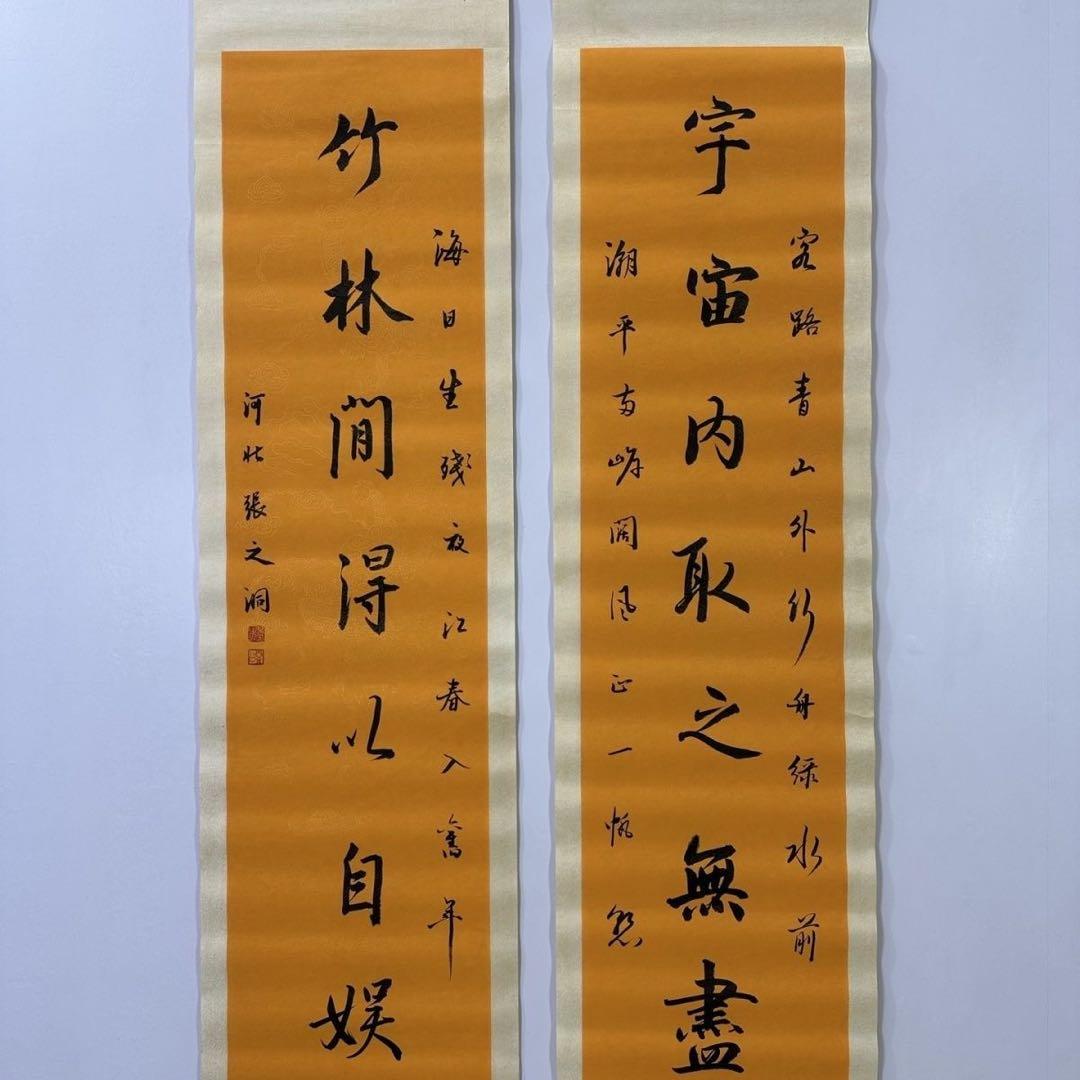 宇宙内取之無盡
客路青山外行舟綠水前
潮平兩岸闊風正一帆懸
竹林間得以自娱
海日生殘夜江春入舊年
河北張之洞